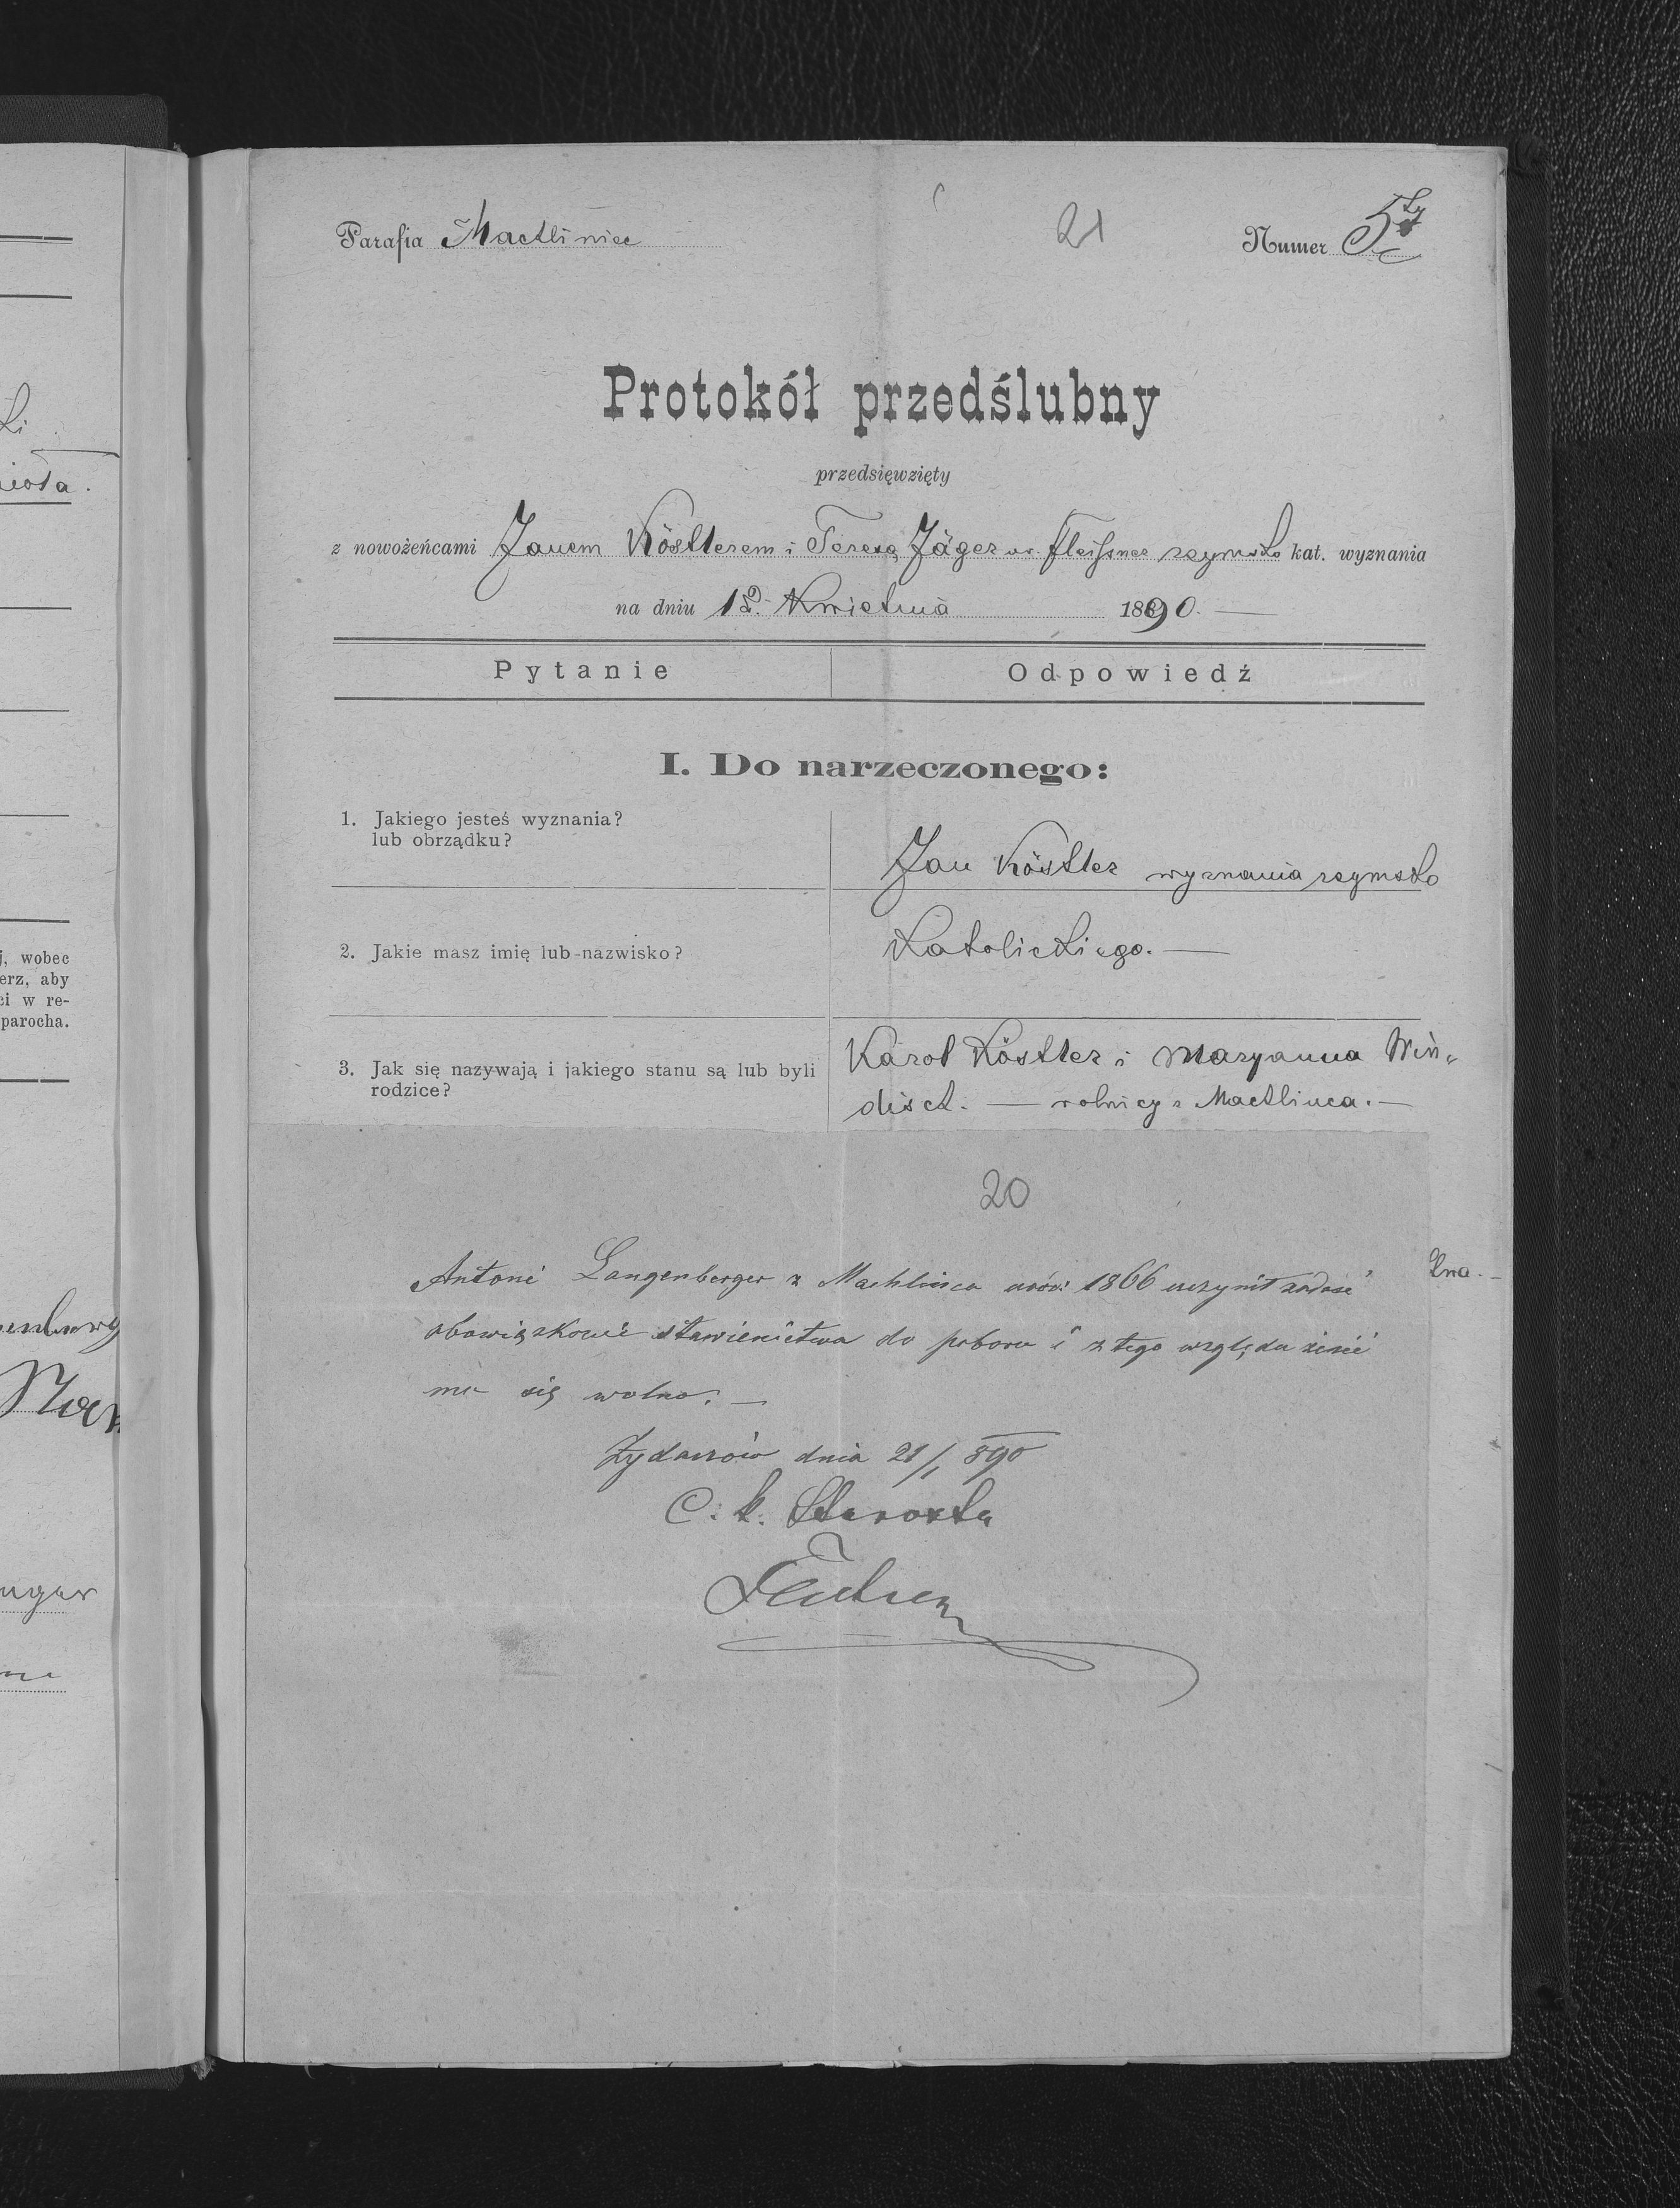 Parafia Machliniec
21
Numer 5ty
Protokół przedślubny
przedsięwzięty
z nowożeńcami Janem Köstlerem i Teresą Jäger ur. Fleissner rzymsko kat. wyznania
na dniu 12. Kwietnia 1890.
Pytanie
Odpowiedź
I. Do narzeczonego:
1. Jakiego jesteś wyznania?
lub obrządku?
Jan Köstler wyznania rzymsko
2. Jakie masz imię lub nazwisko?
Katolickiego. —
3. Jak się nazywają i jakiego stanu są lub byli
rodzice?
Karol Köstler i Maryanna Win„
disch. — rolnicy z Machlinca. —
20
Antoni Langenberger z Machlińca urodz: 1866 uczynił zadość
obowiązkowi stawienictwa do poboru i z tego względu żenić
mu się wolno. —
Żydaczów dnia 21/1 890
C. k. Starosta
zna. –
ki
niosa.
j, wobec
erz, aby
ci w re-
parocha.